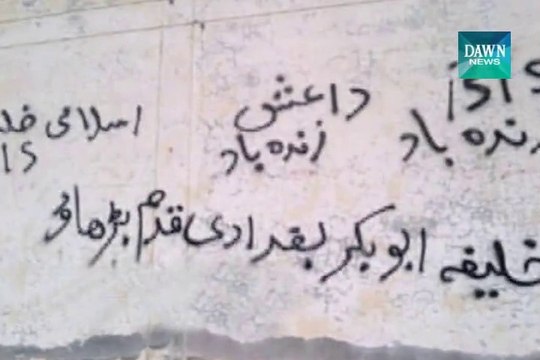 DAWN
NEWS
داعش اسلامی
زندہ باد زندہ باد IS
خلیفہ ابوبکر بغدادی قدم بڑھاؤ